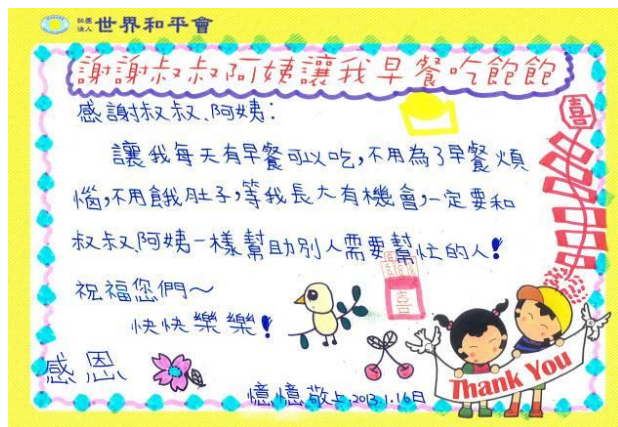 財團法人 世界和平會
謝謝叔叔阿姨讓我早餐吃飽飽
感謝叔叔、阿姨：
讓我每天有早餐可以吃，不用為了早餐煩
惱，不用餓肚子，等我長大有機會，一定要和
叔叔、阿姨一樣幫助別人需要幫忙的人！
祝福您們～
快快樂樂！
感恩
憶憶敬上，2013.1.16日
喜
喜
Thank You